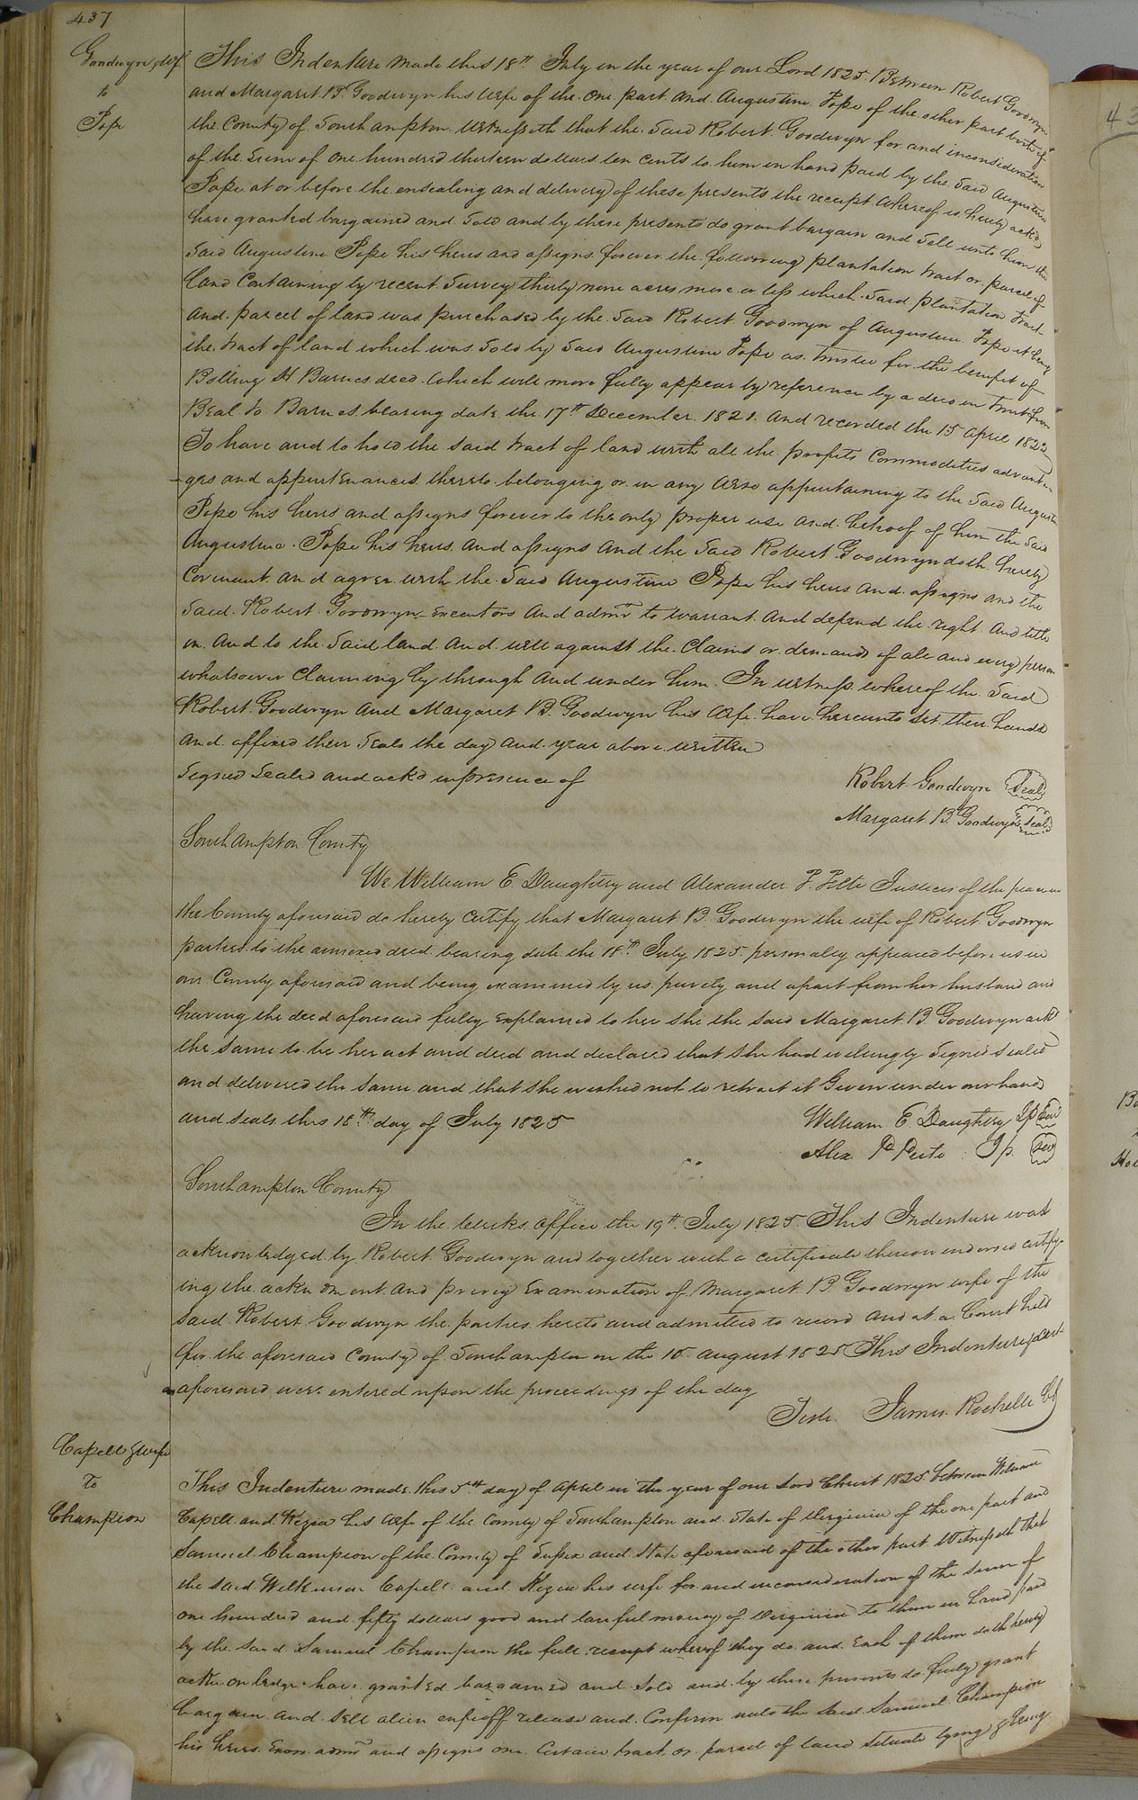 437
Goodwyn & wf
to
Pope
This Indenture made this 18th July in the year of our Lord 1825 Between Robert Goodwyn
and Margaret B. Goodwyn his Wife of the one part and Augustine Pope of the other part both of
the County of Southampton Witnesseth that the Said Robert Goodwyn for and inconsideration
of the Sum of one hundred thirteen dollars ten cents to him in hand paid by the Said Augustine
Pope at or before the ensealing and delivery of these presents the receipt whereof is hereby ackd
have granted bargained and Sold and by these presents do grant bargain and Sell unto him the
Said Augustine Pope his heirs and assigns forever the following plantation tract or parcel of
Land Containing by recent Survey thirty nine acres more or less which Said plantation tract
and parcel of land was purchased by the Said Robert Goodwyn of Augustine Pope it being
the tract of land which was Sold by Said Augustine Pope as trustee for the benefit of
Bolling H Barnes deed which will more fully appear by reference by a deed in trust from
Beal to Barnes bearing date the 17th December 1821 and recorded the 15 April 1822
To have and to hold the said tract of land with all the profits Commodities advanta
-ges and appurtenances thereto belonging or in any wise appurtaining to the Said Augustine
Pope his heirs and assigns forever to the only proper use and behoof of him the Said
Augustine Pope his heirs and assigns and the Said Robert Goodwyn doth hereby
Covenant and agree with the Said Augustine Pope his heirs and assigns and the
Said Robert Goodwyn Executors and admrs to warrant and defend the right and title
in and to the Said land and will against the Claims or demands of all and every person
whatsoever Claiming by through and under him In witness whereof the Said
Robert Goodwyn and Margaret B. Goodwyn his Wife have hereunto Set their hands
and affixed their Seals the day and year above written
Signed Sealed and ackd inpresence of
Robert Goodwyn Seal
Margaret B. Goodwyn Seal
Southampton County
We William E. Daughtry and Alexander P. Justices of the peace in
the County aforesaid do hereby Certify that Margaret B Goodwyn the wife of Robert Goodwyn
parties to the annexed deed bearing date the 18th July 1825 personally appeared before us in
our County aforesaid and being examined by us privily and apart from her husband and
having the deed aforesaid fully Explained to her She the said Margaret B. Goodwyn ackd
the same to be her act and deed and declared that She had willingly Signed Sealed
and delivered the same and that She wished not to retract it Given under our hand
and seals this 18th day of July 1825
William E. Daughtry Jp Seal
Alex P. Jp Seal
Southampton County
In the Clerks office the 19th July 1825 This Indenture was
acknowledged by Robert Goodwyn and together with a certificate thereon endorsed certify-
ing the ackn om ent and privy Examination of Margaret B Goodwyn wife of the
Said Robert Goodwyn the parties hereto and admitted to record and at a Court held
for the aforesaid County of Southampton on the 15 August 1825 This Indenture & Cert
aforesaid were entered upon the proceedings of the day
Teste James Rochelle Cl
Capell & wife
To
Champion
This Indenture made this 5th day of April in the year of our Lord Christ 1825 between
Capell and Kezia his wife of the County of Southampton and State of Virginia of the one part and
Samuel Champion of the County of Sussex and State aforesaid of the other part Witnesseth that
the said Wilkinson Capell and Kezia his wife for and inconsideration of the Sum of
one hundred and fifty dollars good and lawful money of Virginia to them in hand paid
by the Said Samuel Champion the full receipt whereof they do and Each of them doth hereby
ackn on ledge have granted bargained and Sold and by these presents do fully grant
bargain and Sell alien enfeoff release and Confirm unto the Said Samuel Champion
his heirs Exors admrs and assigns one Certain tract or parcel of land situate lying & being